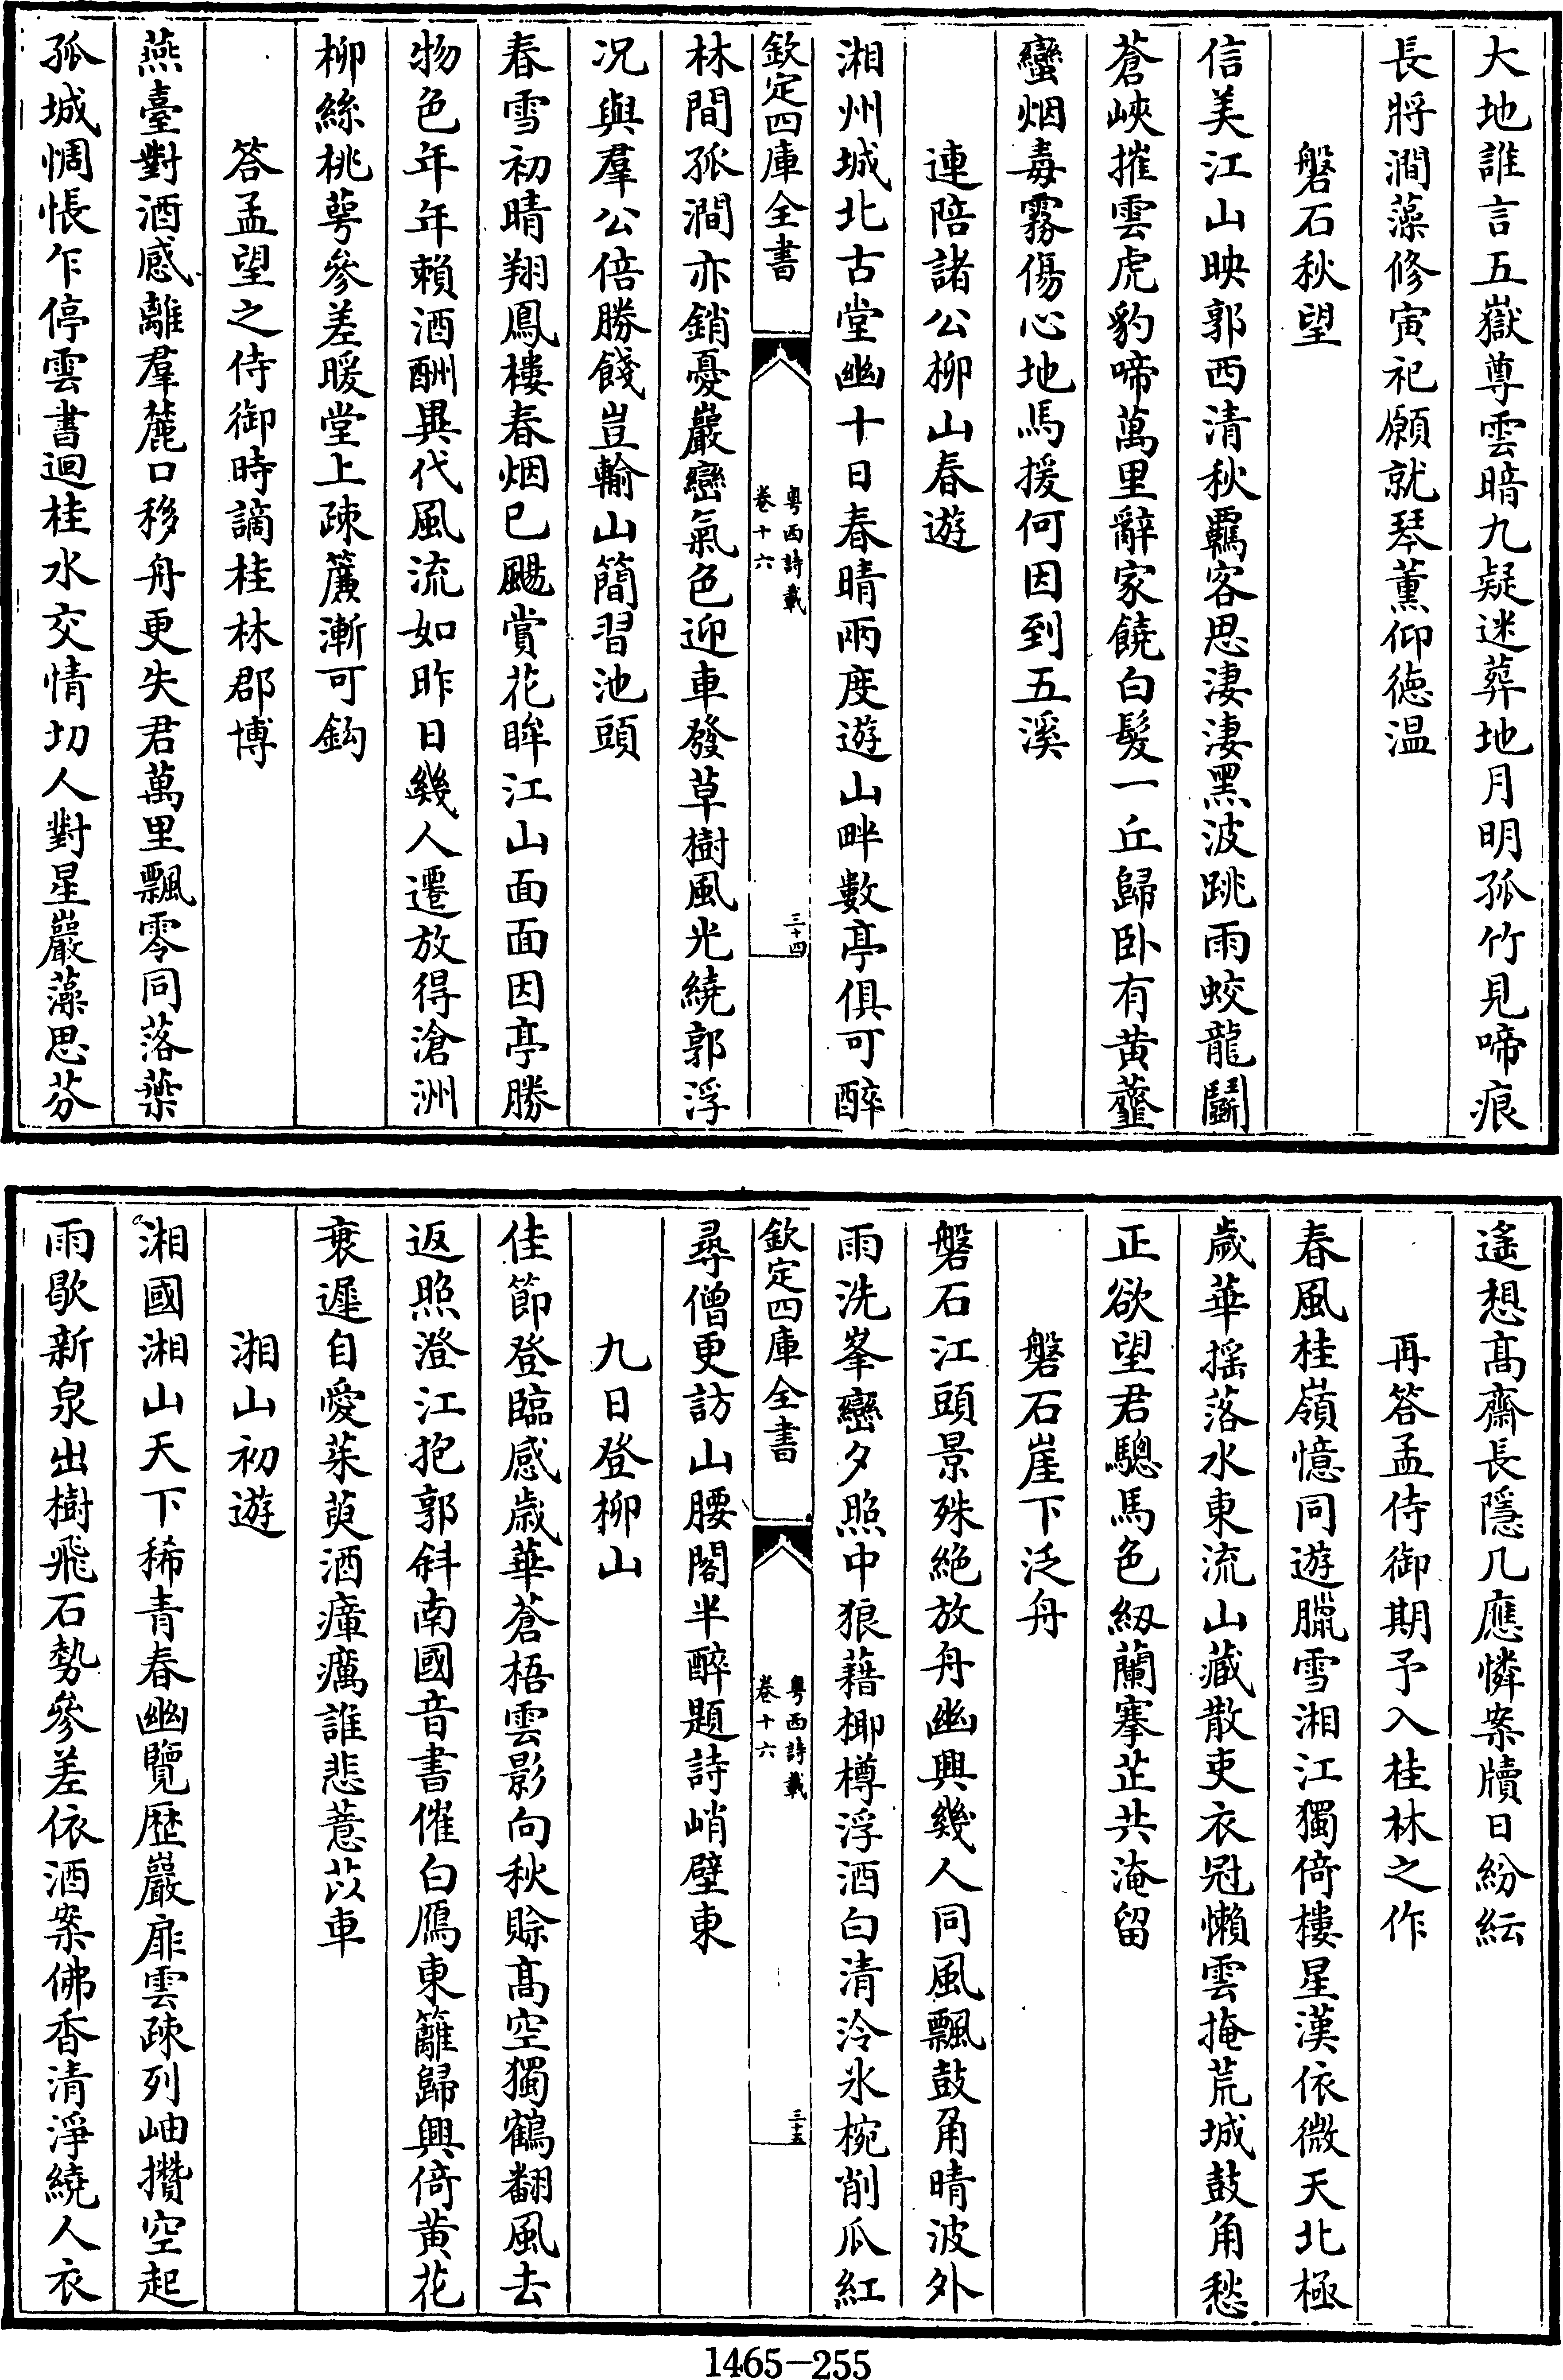 大地誰言五嶽尊雲暗九疑迷葬地月明孤竹見啼痕
長將澗藻修寅祀願就琴薰仰徳温
磐石秋望
信美江山映郭西清秋羈客思淒淒黑波跳雨蛟龍鬬
蒼峽摧雲虎豹啼萬里辭家饒白髮一丘歸卧有黄虀
蠻烟毒霧傷心地馬援何因到五溪
連陪諸公柳山春遊
湘州城北古堂幽十日春晴兩度遊山畔數亭俱可醉
欽定四庫全書
粤西詩載
卷十六
三十四
林間孤澗亦銷憂巖巒氣色迎車發草樹風光繞郭浮
况與羣公倍勝餞豈輸山簡習池頭
春雪初晴翔鳳樓春烟已颺賞花眸江山面面因亭勝
物色年年賴酒酬異代風流如昨日幾人遷放得滄洲
柳絲桃萼參差暖堂上疎簾漸可鈎
答孟望之侍御時謫桂林郡博
燕臺對酒感離羣麓口移舟更失君萬里飄零同落葉
孤城惆悵乍停雲書迴桂水交情切人對星巖藻思芬
遙想髙齋長隱几應憐案牘日紛紜
再答孟侍御期予入桂林之作
春風桂嶺憶同遊臘雪湘江獨倚樓星漢依微天北極
歲華揺落水東流山藏散吏衣冠懶雲掩荒城鼓角愁
正欲望君驄馬色紉蘭搴芷共淹留
磐石崖下泛舟
磐石江頭景殊絶放舟幽興幾人同風飄鼓角晴波外
雨洗峯巒夕照中狼藉椰樽浮酒白清泠氷椀削瓜紅
欽定四庫全書
粤西詩載
卷十六
三十五
尋僧更訪山腰閣半醉題詩峭壁東
九日登柳山
佳節登臨感歳華蒼梧雲影向秋賒髙空獨鶴翻風去
返照澄江抱郭斜南國音書催白鴈東籬歸興倚黄花
衰遲自愛茱萸酒瘴癘誰悲薏苡車
湘山初遊
湘國湘山天下稀青春幽覽歴巖扉雲疎列岫攢空起
雨歇新泉出樹飛石勢參差依酒案佛香清淨繞人衣
1465-255